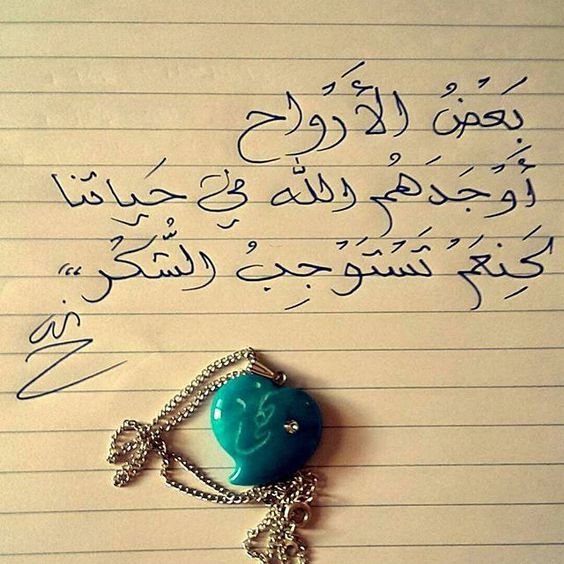 بَعْضُ الأَرْوَاح
أَوْجَدَهُم الله في حَياتنا
كَنِعَمْ تَسْتَوْجِبُ الشُّكْر ،،